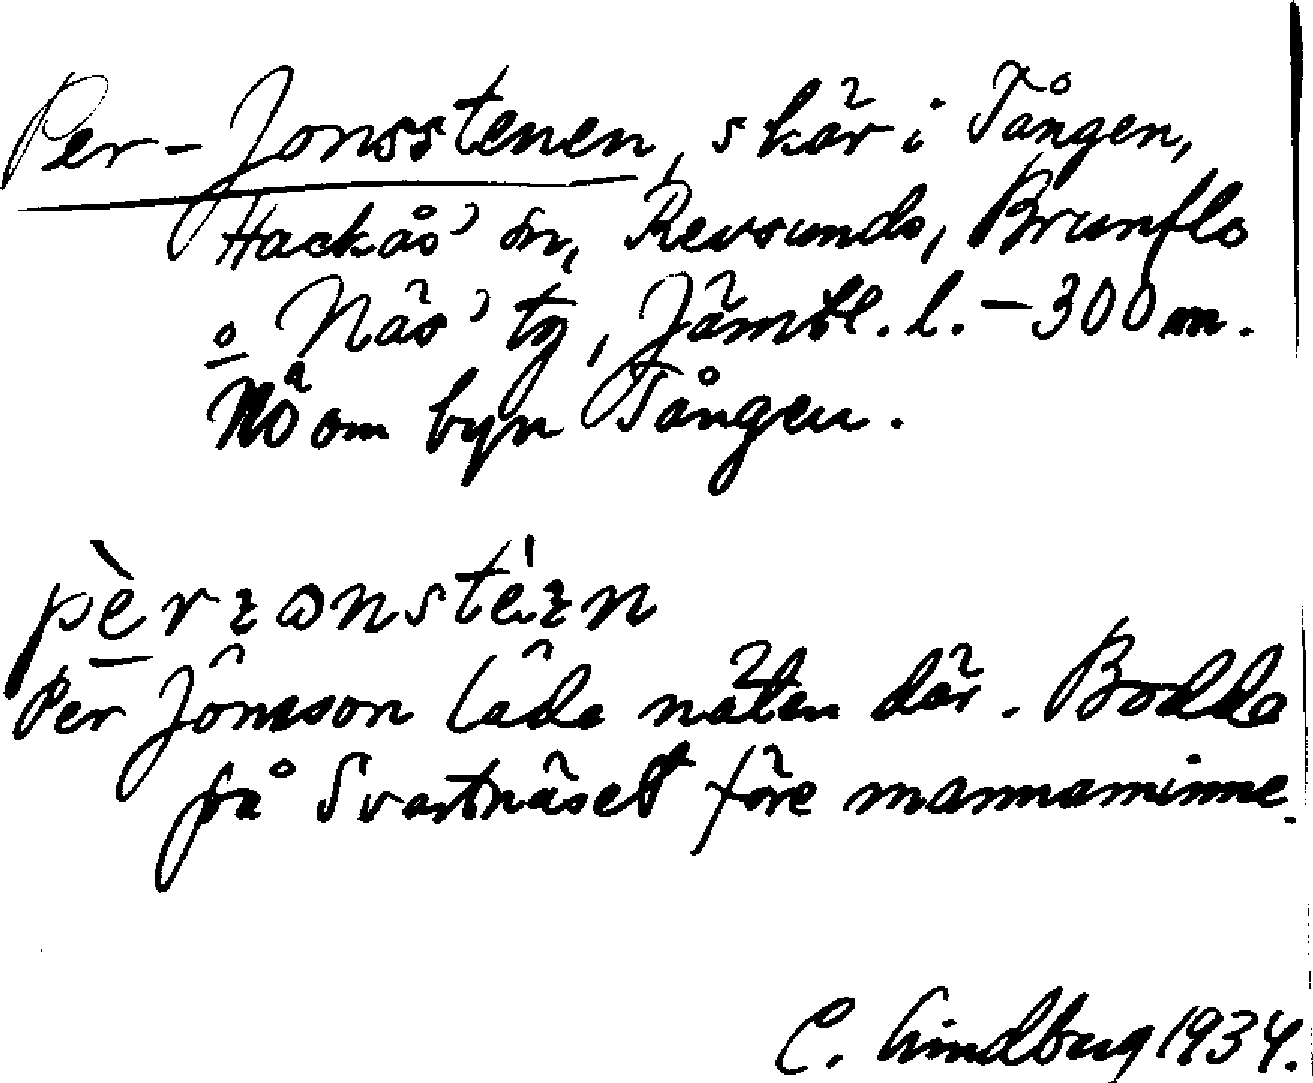 Per-Jonsstenen, skär i Tången,
Hackås' sn, Revsunds, Brunflo
o Näs' tg, Jämtl. l. - 300 m.
NÖ om byn Tången.
Per Jönsson lade näten där. Bodde
på Svartnäset före mannaminne.
C. Lindberg 1934.